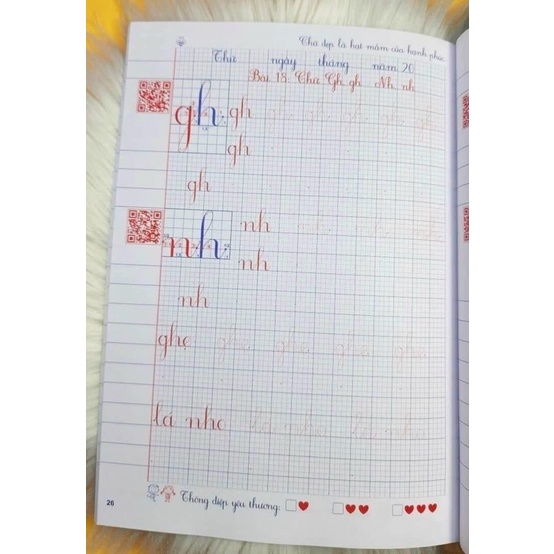 Chữ đẹp là hạt mầm của hạnh phúc
Thứ ngày tháng năm 20
Bài 18: Chữ Gh gh Nh nh
gh gh gh gh gh gh gh
gh
gh
nh nh
nh
nh
ghẹ ghẹ ghẹ ghẹ ghẹ
lá nho lá nho lá nho
Thông điệp yêu thương:
26